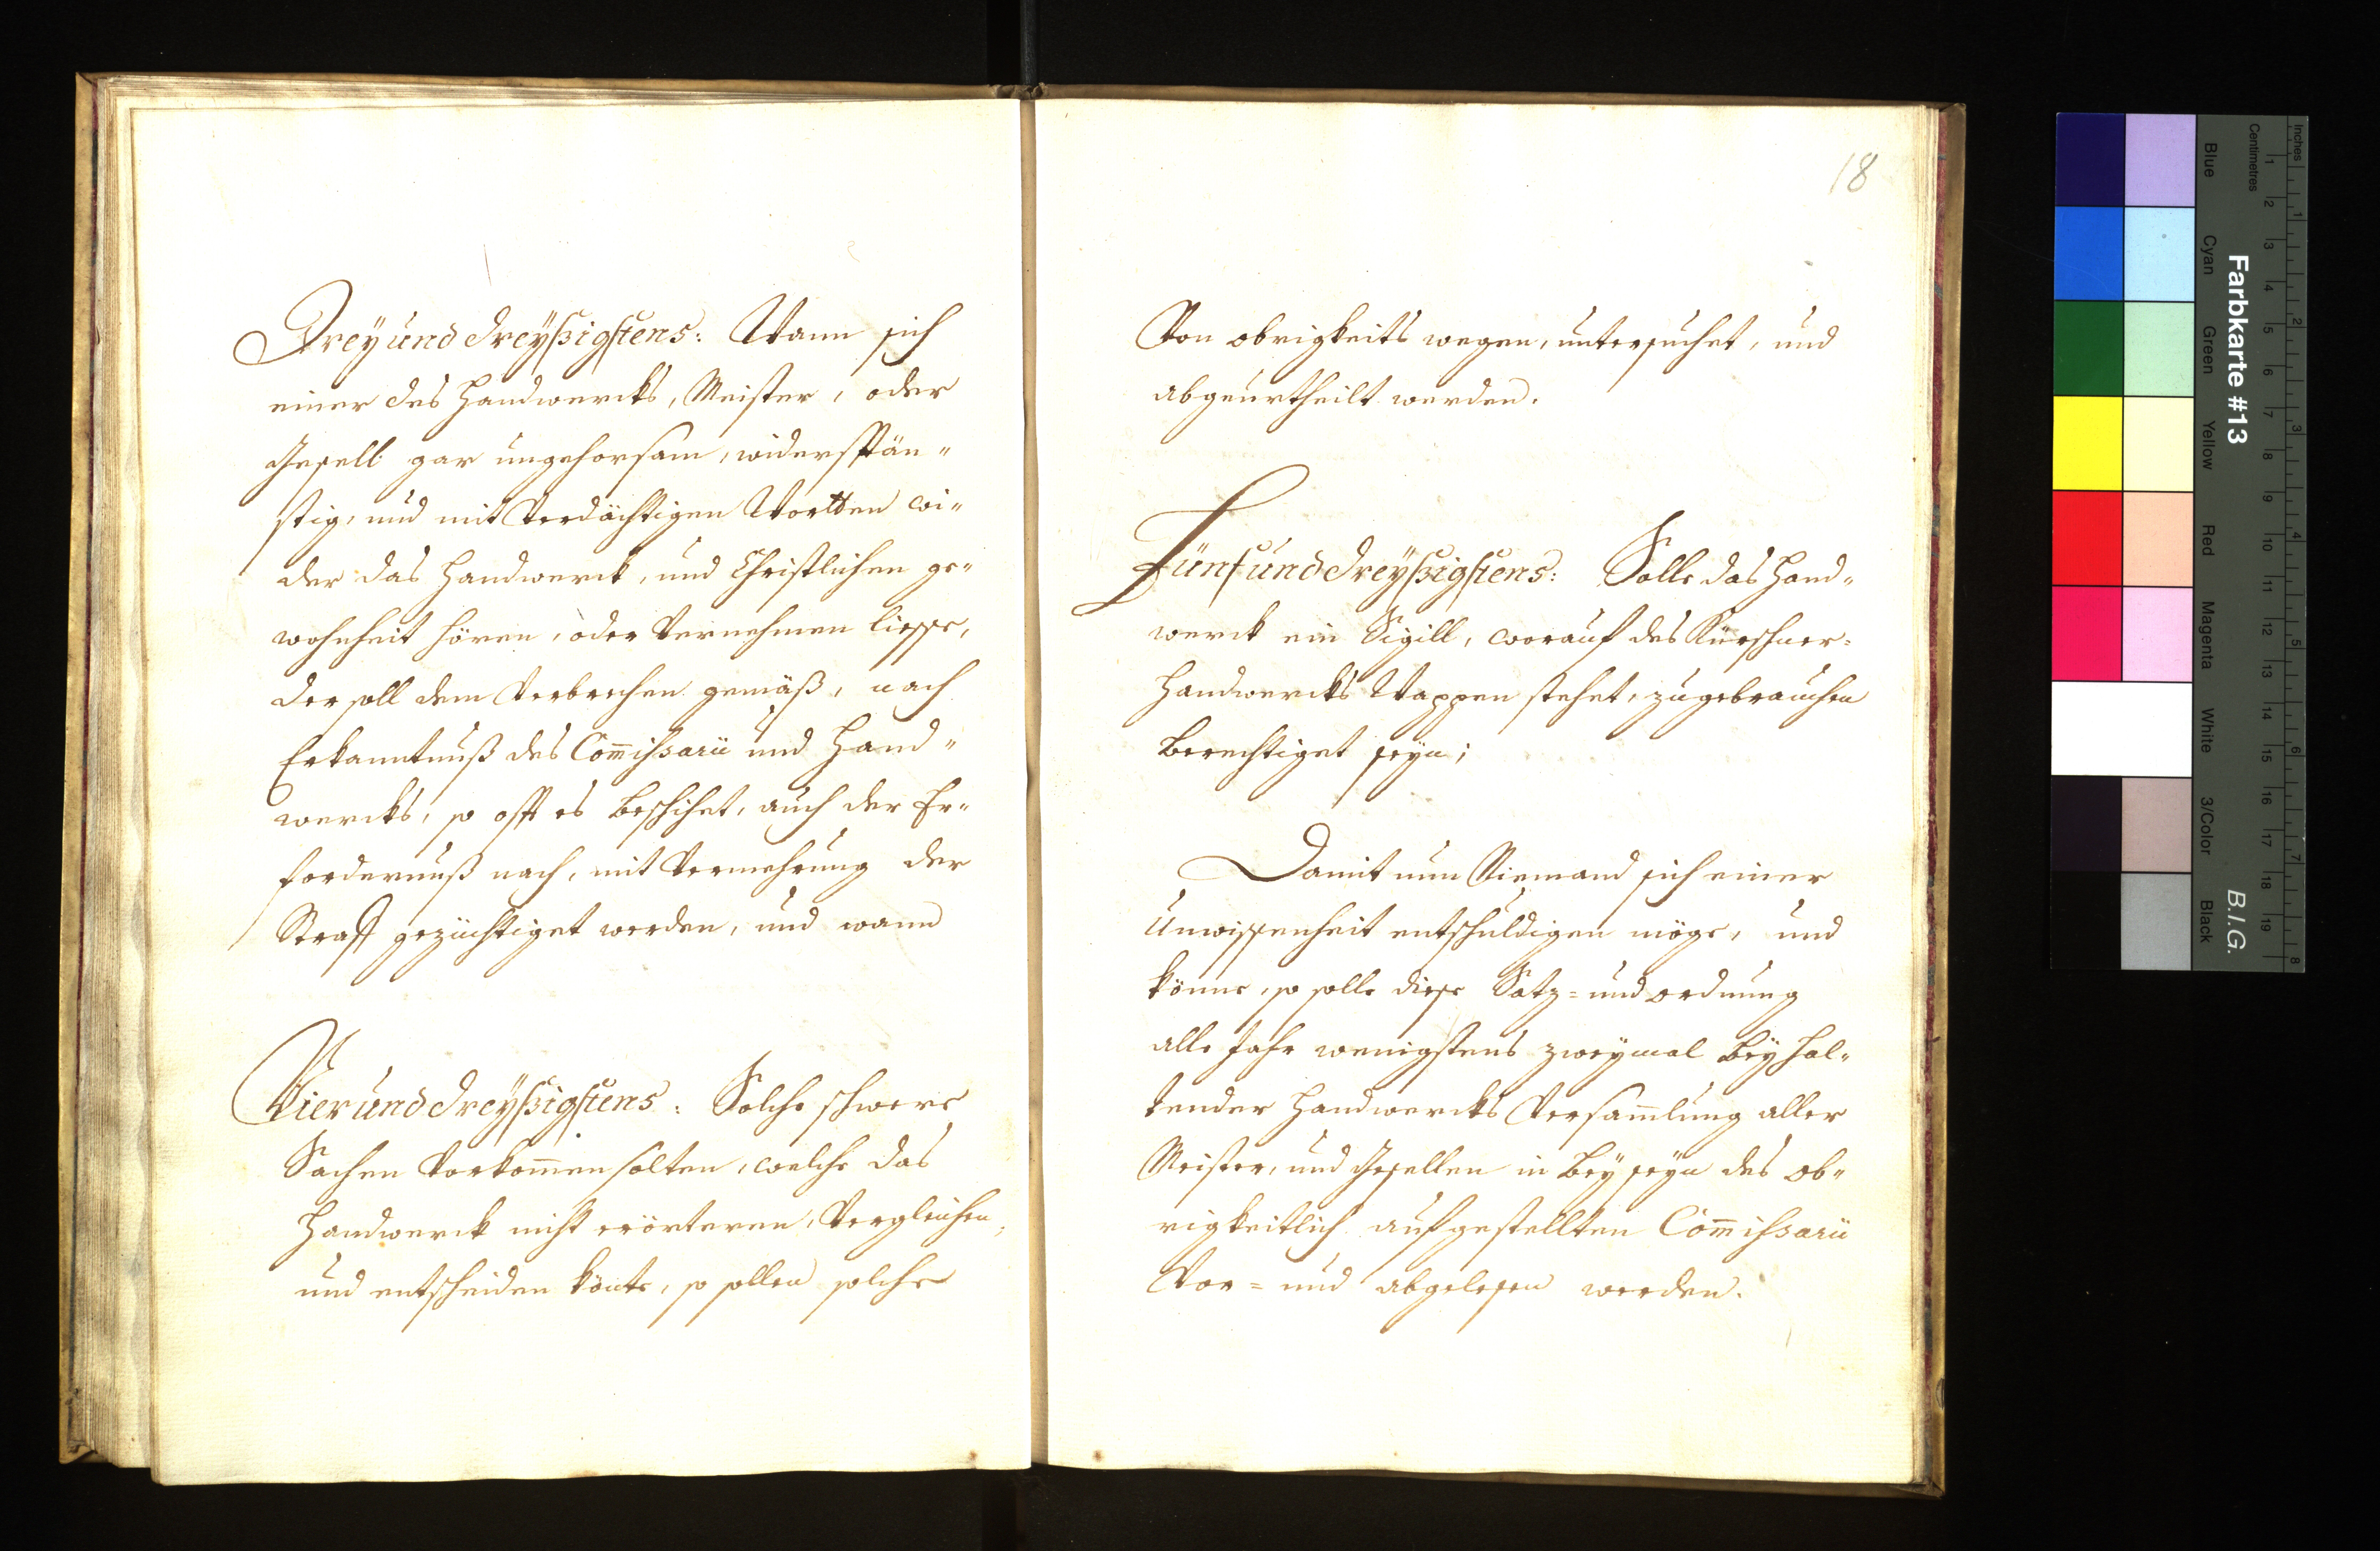 Dreyunddreyßigstens: Wann sich
einer des Handwercks, Meister, oder
Gesell gar ungehorsam, widerspän„
stig, und mit Verdächtigen Wortten wi„
der das Handwerck, und Christlichen ge„
wohnheit hören, oder Vernehmen liesse,
der soll dem Verbrechen gemäß, nach
Erkanntnuß des Com̅issarii und Hand„
wercks, so offt es beschihet, auch der Er„
fordernuß nach, mit Vermehrung der
Straff gezüchtiget werden, und wann
Vierunddreyßigstens: Solche schwere
Sachen Vorkom̅en solten, welche das
Handwerck nicht erörteren, Vergleichen,
und entscheiden könte, so sollen solche
18
Von obrigkeits wegen, untersuchet, und
abgeurtheilt werden.
Fünfunddreyßigstens: Solle das Hand„
werck ein Sigill, worauf des Kürschner=
Handwercks Wappen stehet, zugebrauchen
berechtiget seyn;
Damit nun Niemand sich einer
Unwissenheit entschuldigen möge, und
könne, so solle diese Satz= und ordnung
alle Jahr wenigstens zweymal bey hal„
tender Handwercks Versam̅lung aller
Meister, und Gesellen in beyseyn des ob„
rigkeitlich aufgestellten Com̅issarii
Vor= und abgelesen werden.
Farbkarte #13
B.I.G.
Inches
Centimetres
1 2 3 4 5 6 7 8 9 10 11 12 13 14 15 16 17 18 19
1 2 3 4 5 6 7 8
Blue Cyan Green Yellow Red Magenta White 3/Color Black